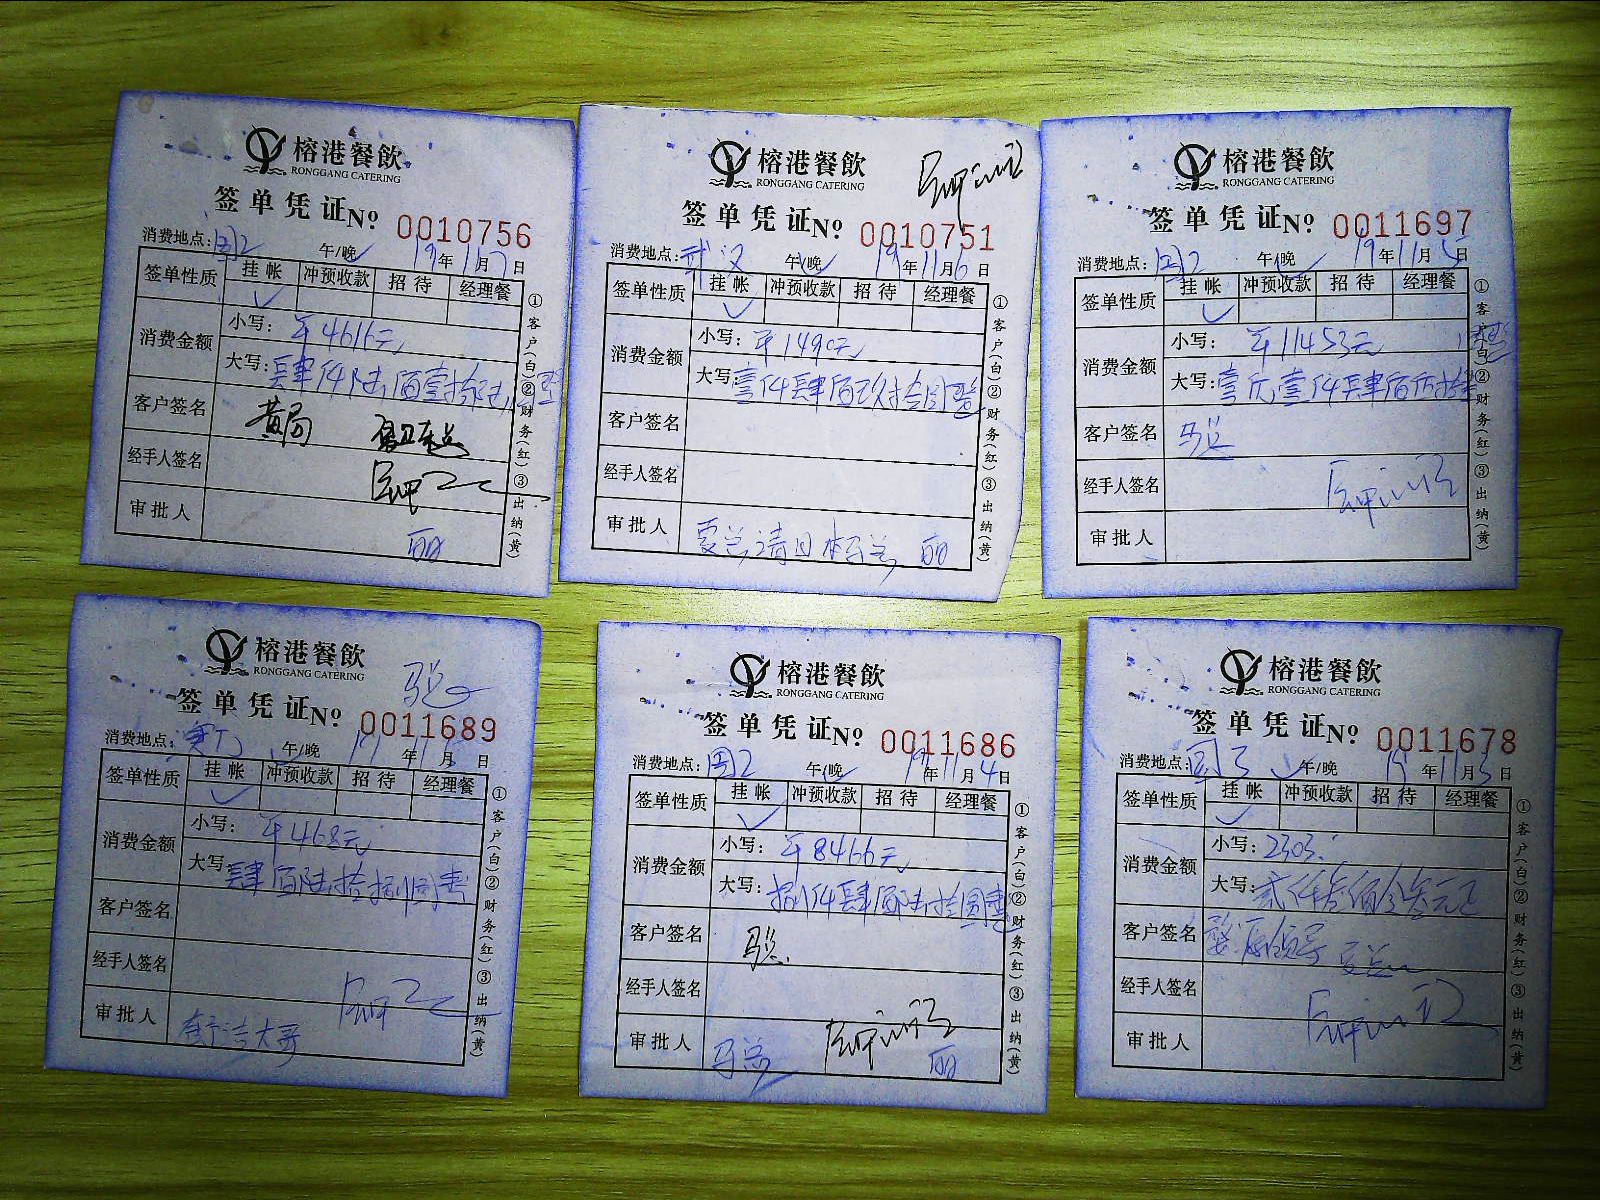 榕港餐飲
RONGGANG CATERING
签单凭证№ 0010756
消费地点: 园2 午/晚 19年11月7日
签单性质 挂帐 冲预收款 招待 经理餐
消费金额 小写: ¥4616元
大写: 肆仟陆佰壹拾陆
客户签名 黄局
经手人签名
审批人 丽
①客户(白)②财务(红)③出纳(黄)
榕港餐飲
RONGGANG CATERING
签单凭证№ 0010751
消费地点: 武汉 午/晚 19年11月6日
签单性质 挂帐 冲预收款 招待 经理餐
消费金额 小写: ¥1490元
大写: 壹仟肆佰玖拾圆整
客户签名
经手人签名
审批人 丽
①客户(白)②财务(红)③出纳(黄)
榕港餐飲
RONGGANG CATERING
签单凭证№ 0011697
消费地点: 园2 午/晚 19年11月5日
签单性质 挂帐 冲预收款 招待 经理餐
消费金额 小写: ¥11453元
大写: 壹万壹仟肆佰伍拾
客户签名 马总
经手人签名
审批人
①客户(白)②财务(红)③出纳(黄)
榕港餐飲
RONGGANG CATERING
马总
签单凭证№ 0011689
消费地点: 午/晚 19年11月 日
签单性质 挂帐 冲预收款 招待 经理餐
消费金额 小写: ¥468元
大写: 肆佰陆拾捌圆整
客户签名
经手人签名
审批人 大哥
①客户(白)②财务(红)③出纳(黄)
榕港餐飲
RONGGANG CATERING
签单凭证№ 0011686
消费地点: 园2 午/晚 19年11月4日
签单性质 挂帐 冲预收款 招待 经理餐
消费金额 小写: ¥8466元
大写: 捌仟肆佰陆拾圆整
客户签名 马总
经手人签名
审批人 马总 丽
①客户(白)②财务(红)③出纳(黄)
榕港餐飲
RONGGANG CATERING
签单凭证№ 0011678
消费地点: 园3 午/晚 19年11月3日
签单性质 挂帐 冲预收款 招待 经理餐
消费金额 小写: 2303.
大写: 贰仟叁佰零叁元正
客户签名 婺源领导
经手人签名
审批人
①客户(白)②财务(红)③出纳(黄)